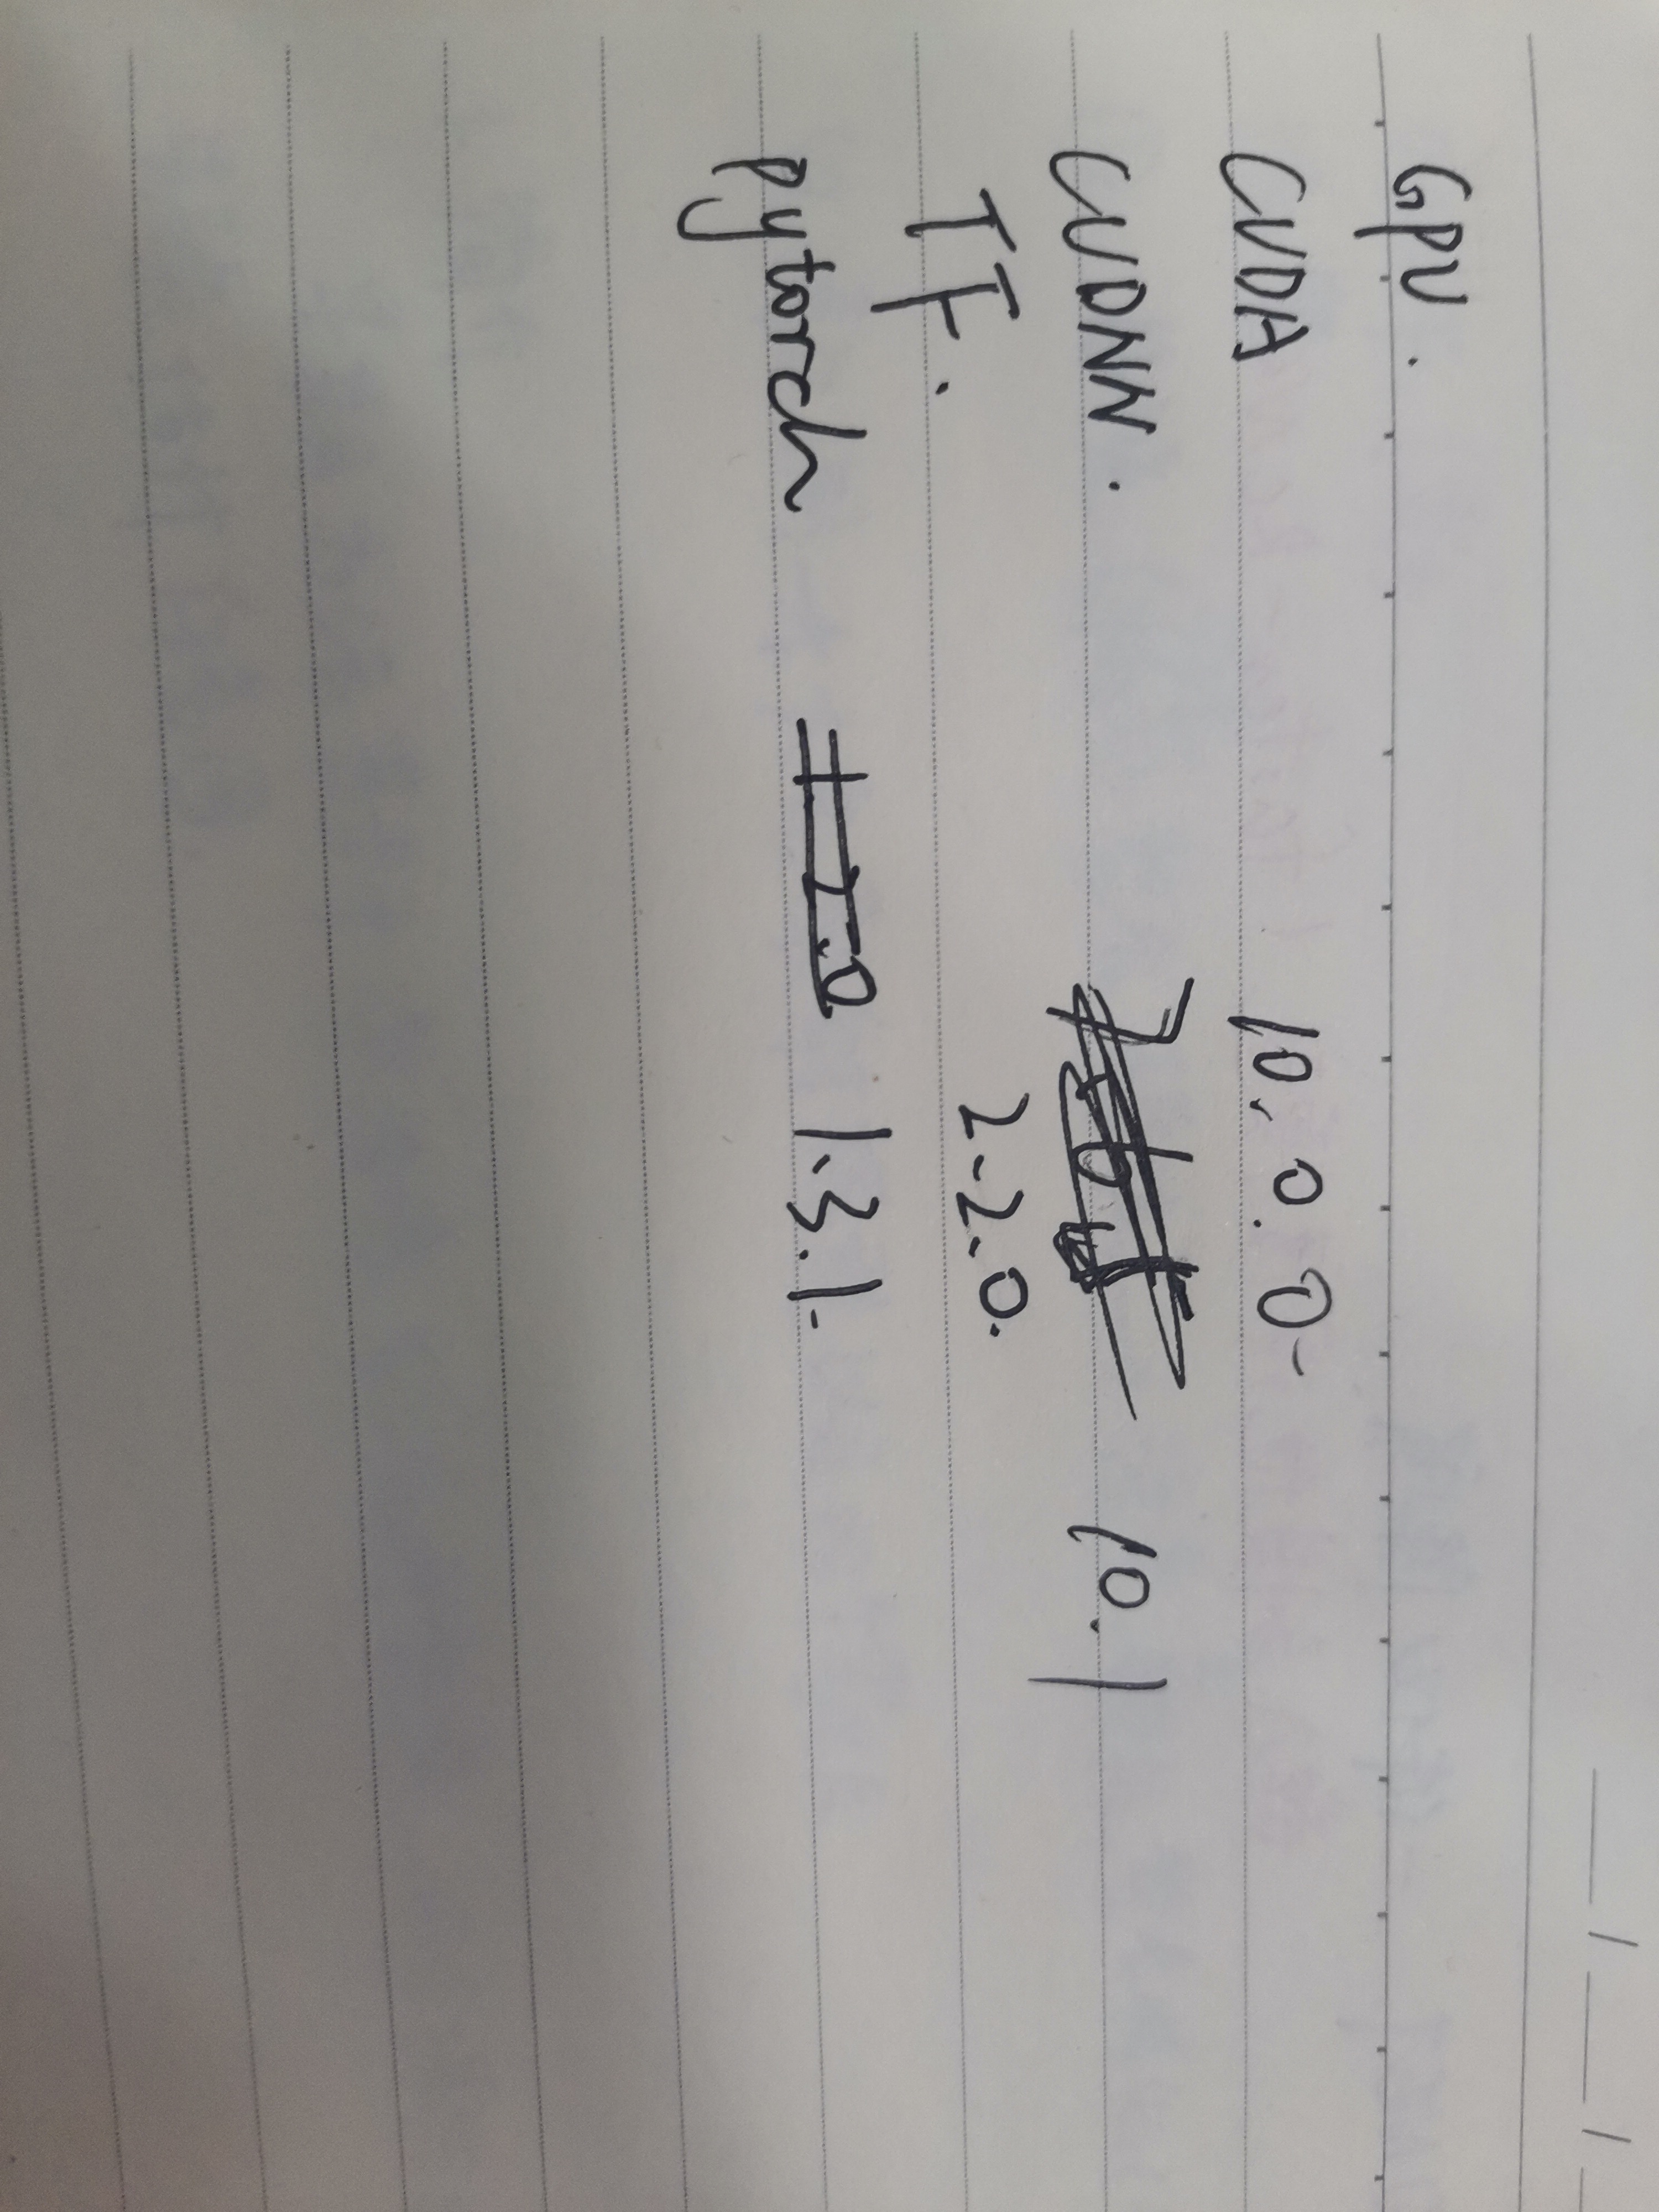 GPU.
CUDA 10.0.0
CUDNN. 10.1
TF. 2.2.0.
pytorch 1.3.1.